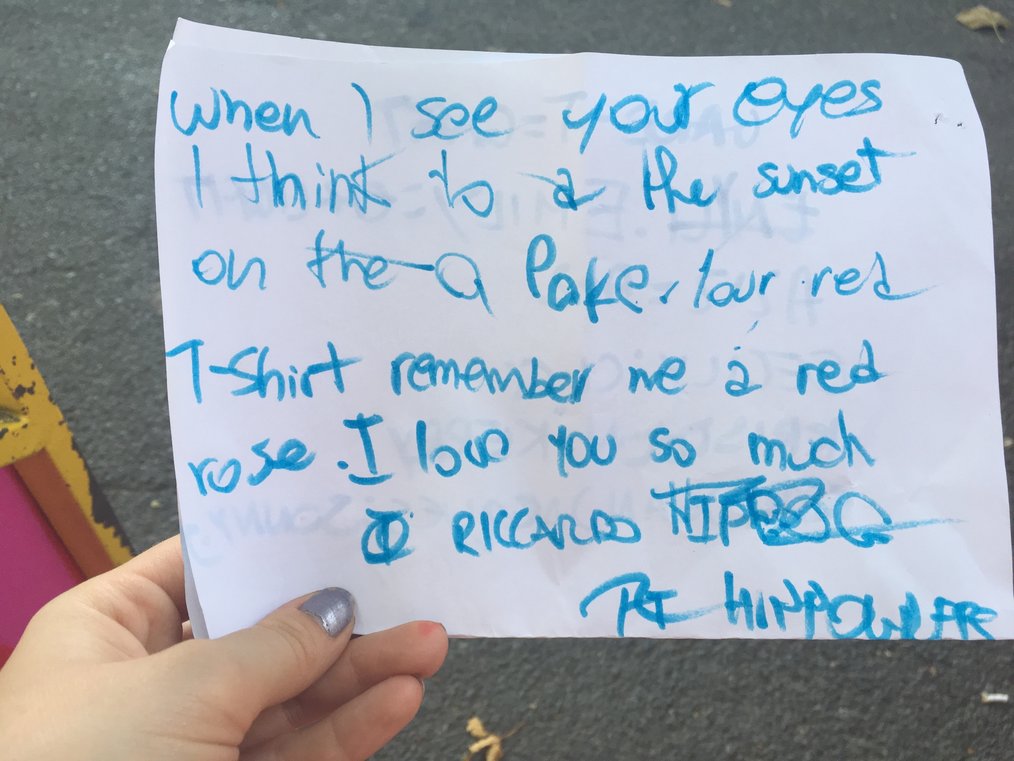 when I see your eyes
I think to a the sunset
on the a lake. Your red
T-shirt remember me a red
rose. I love you so much
RICCARDO